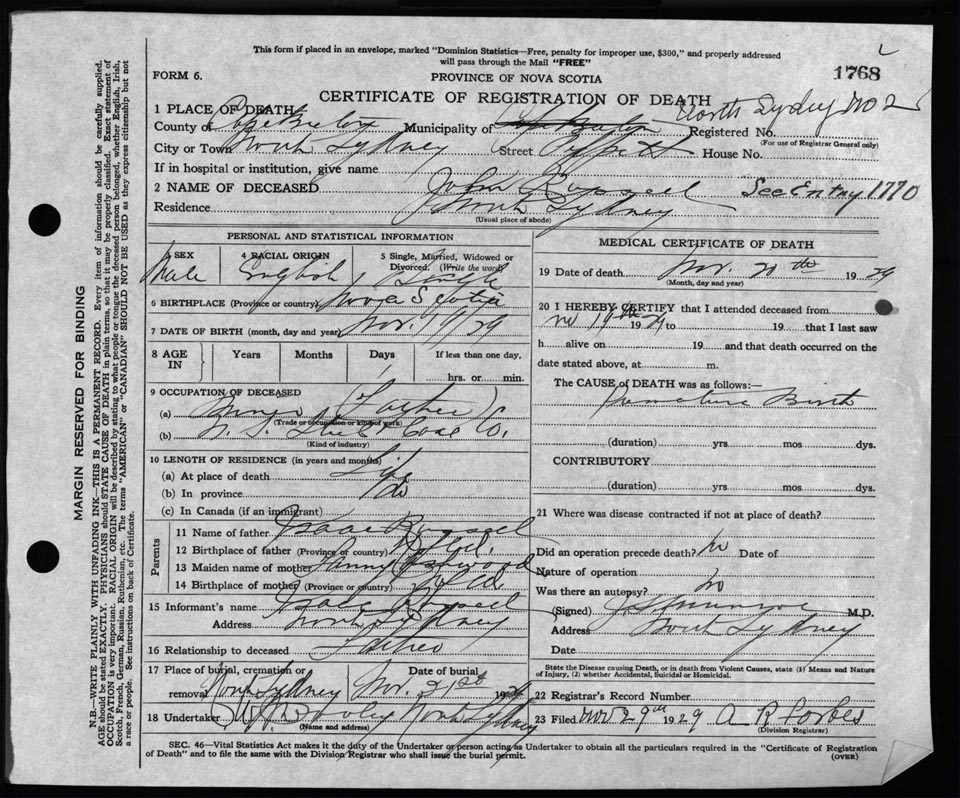 This form if placed in an envelope, marked "Dominion Statistics—Free, penalty for improper use, $300," and properly addressed
will pass through the Mail "FREE"
FORM 6.
PROVINCE OF NOVA SCOTIA
1768
CERTIFICATE OF REGISTRATION OF DEATH
North Sydney No 2
1 PLACE OF DEATH
County of Cape Breton Municipality of Cape Breton Registered No.
(For use of Registrar General only)
City or Town North Sydney Street Pippett House No.
If in hospital or institution, give name
2 NAME OF DECEASED John Russell See Entry 1770
Residence North Sydney
(Usual place of abode)
PERSONAL AND STATISTICAL INFORMATION
3 SEX Male
4 RACIAL ORIGIN English
5 Single, Married, Widowed or Divorced. (Write the word) Single
6 BIRTHPLACE (Province or country) Nova Scotia
7 DATE OF BIRTH (month, day and year) Nov. 19/29
8 AGE IN Years Months Days 1 If less than one day, hrs. or min.
9 OCCUPATION OF DECEASED
(a) Miner (Father)
(Trade or occupation or kind of work)
(b) N. S. Steel & Coal Co.
(Kind of industry)
10 LENGTH OF RESIDENCE (in years and months)
(a) At place of death Life
(b) In province do
(c) In Canada (if an immigrant)
Parents
11 Name of father Isaac Russell
12 Birthplace of father (Province or country) Nfld.
13 Maiden name of mother Fanny
14 Birthplace of mother (Province or country) Nfld
15 Informant's name Isaac Russell
Address North Sydney
16 Relationship to deceased Father
17 Place of burial, cremation or removal North Sydney
Date of burial Nov. 21st 1929
18 Undertaker North Sydney
(Name and address)
MEDICAL CERTIFICATE OF DEATH
19 Date of death Nov. 20th 1929
(Month, day and year)
20 I HEREBY CERTIFY that I attended deceased from
Nov 19th 1929 to 19 that I last saw
h alive on 19 and that death occurred on the
date stated above, at m.
The CAUSE of DEATH was as follows:—
Premature Birth
(duration) yrs. mos. dys.
CONTRIBUTORY
(duration) yrs. mos. dys.
21 Where was disease contracted if not at place of death?
Did an operation precede death? No Date of
Nature of operation
Was there an autopsy? No
(Signed) M.D.
Address North Sydney
Date
State the Disease causing Death, or in death from Violent Causes, state (1) Means and Nature
of Injury, (2) whether Accidental, Suicidal or Homicidal.
22 Registrar's Record Number
23 Filed Nov 29th 1929 A R Forbes
(Division Registrar)
SEC. 46—Vital Statistics Act makes it the duty of the Undertaker or person acting as Undertaker to obtain all the particulars required in the "Certificate of Registration
of Death" and to file the same with the Division Registrar who shall issue the burial permit.
(OVER)
MARGIN RESERVED FOR BINDING
N.B.—WRITE PLAINLY WITH UNFADING INK—THIS IS A PERMANENT RECORD. Every item of information should be carefully supplied.
AGE should be stated EXACTLY. PHYSICIANS should STATE CAUSE OF DEATH in plain terms, so that it may be properly classified. Exact statement of
OCCUPATION is very important. RACIAL ORIGIN will be described by stating to what people or tongue the deceased person belonged, whether English, Irish,
Scotch, French, German, Russian, Ruthenian, etc. The terms "AMERICAN" or "CANADIAN" SHOULD NOT BE USED as they express citizenship but not
a race or people. See instructions on back of Certificate.